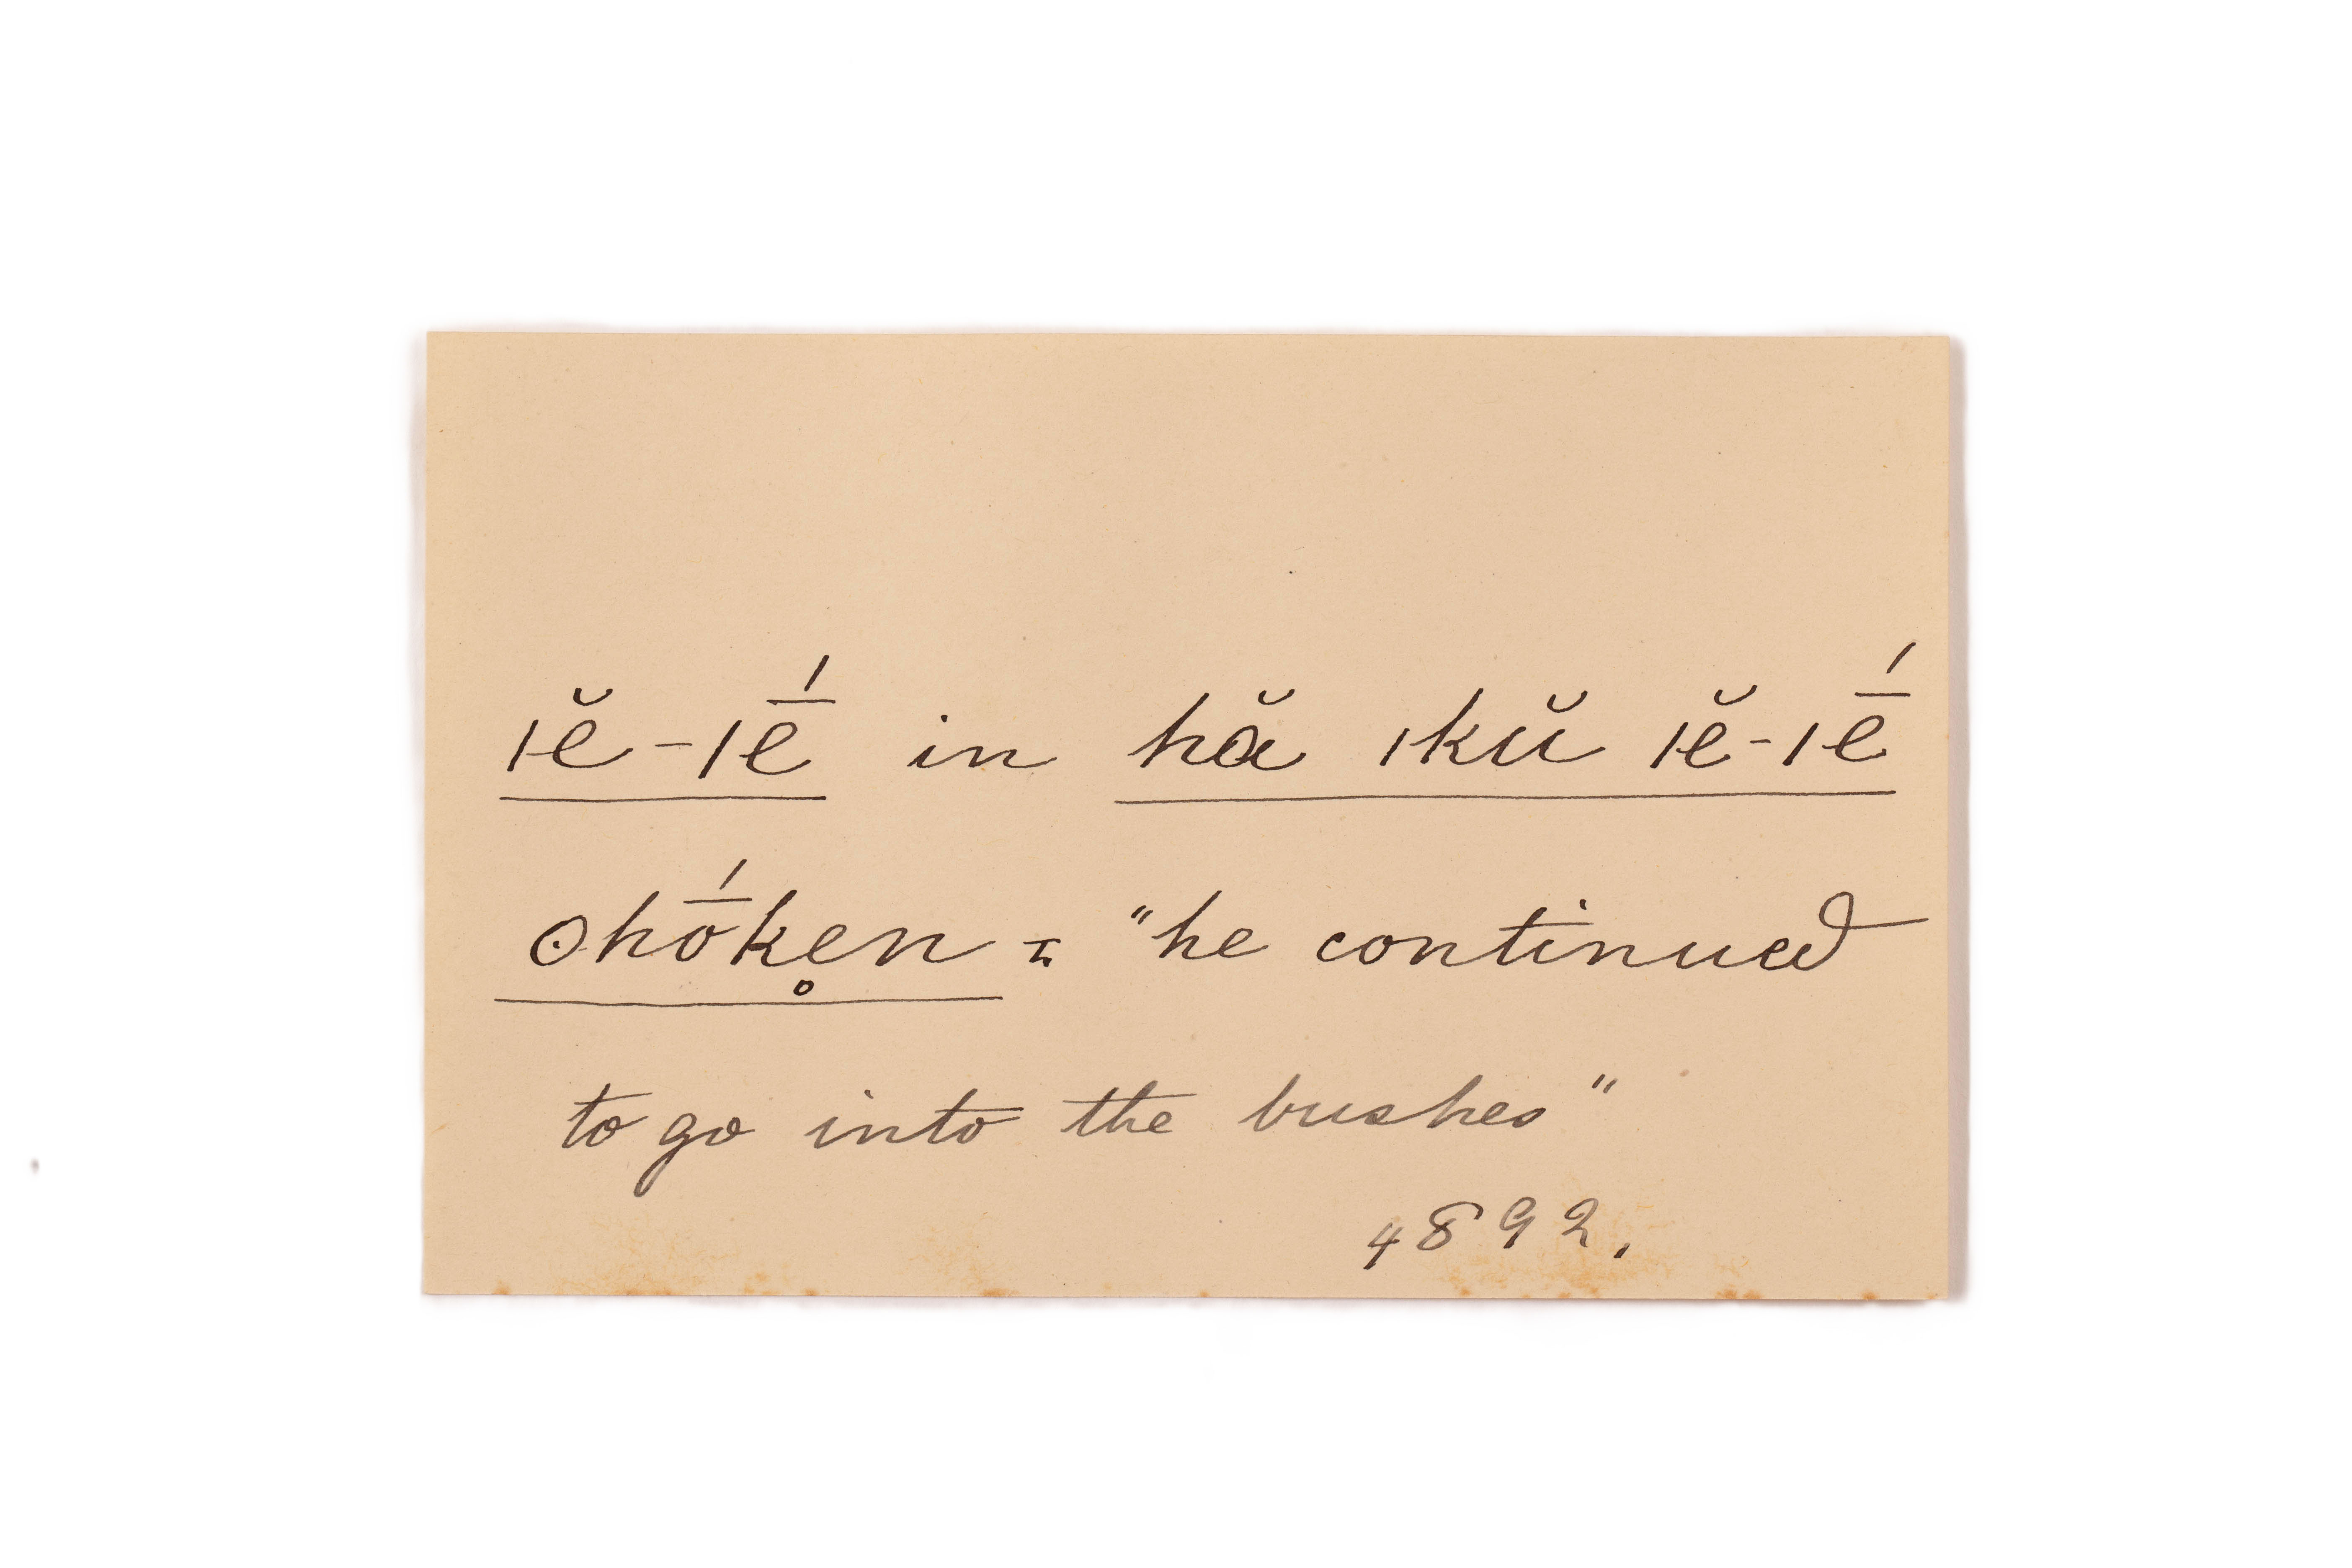 ǀĕ-ǀḗ in hă ǀkŭ ǀĕ-ǀḗ
ʘhṓke̥n = "he continued
to go into the bushes"
4892.